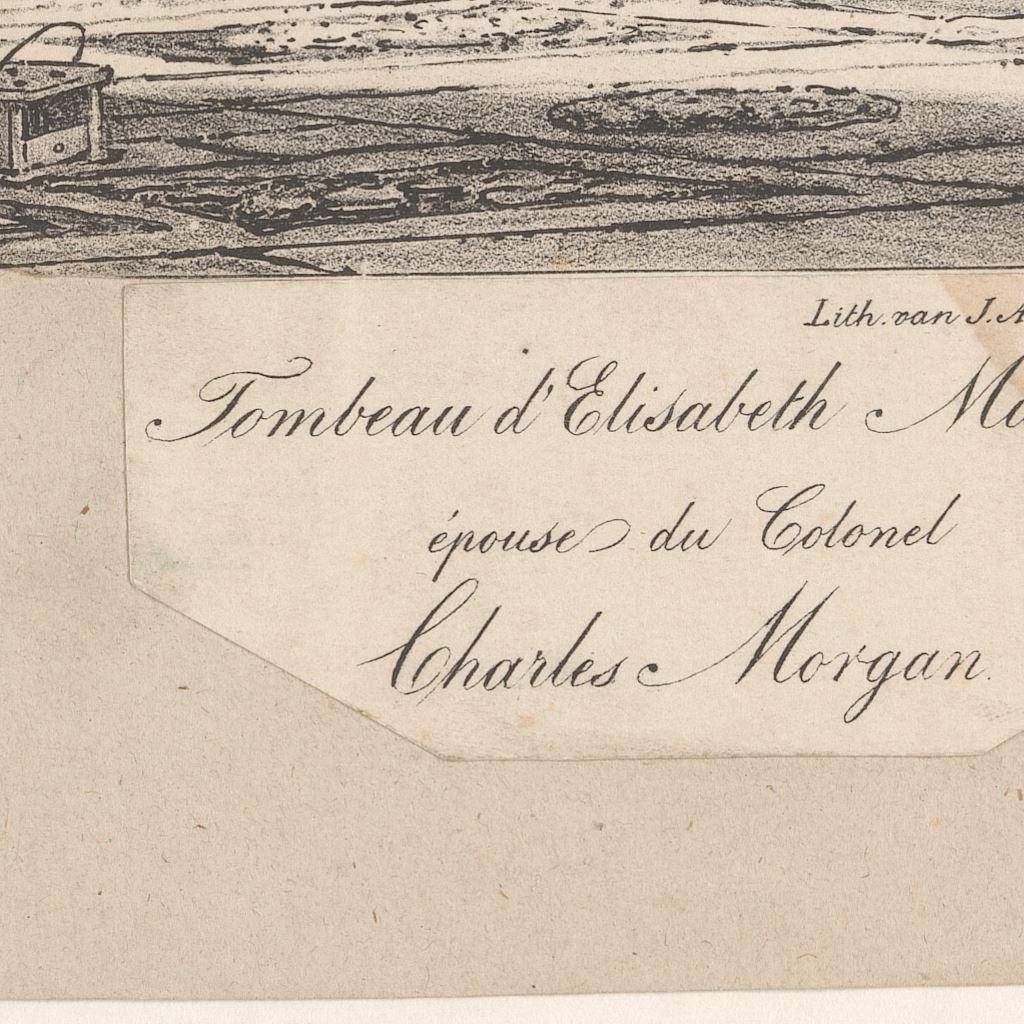 Lith. van J.
Tombeau d'Elisabeth
épouse du Colonel
Charles Morgan.